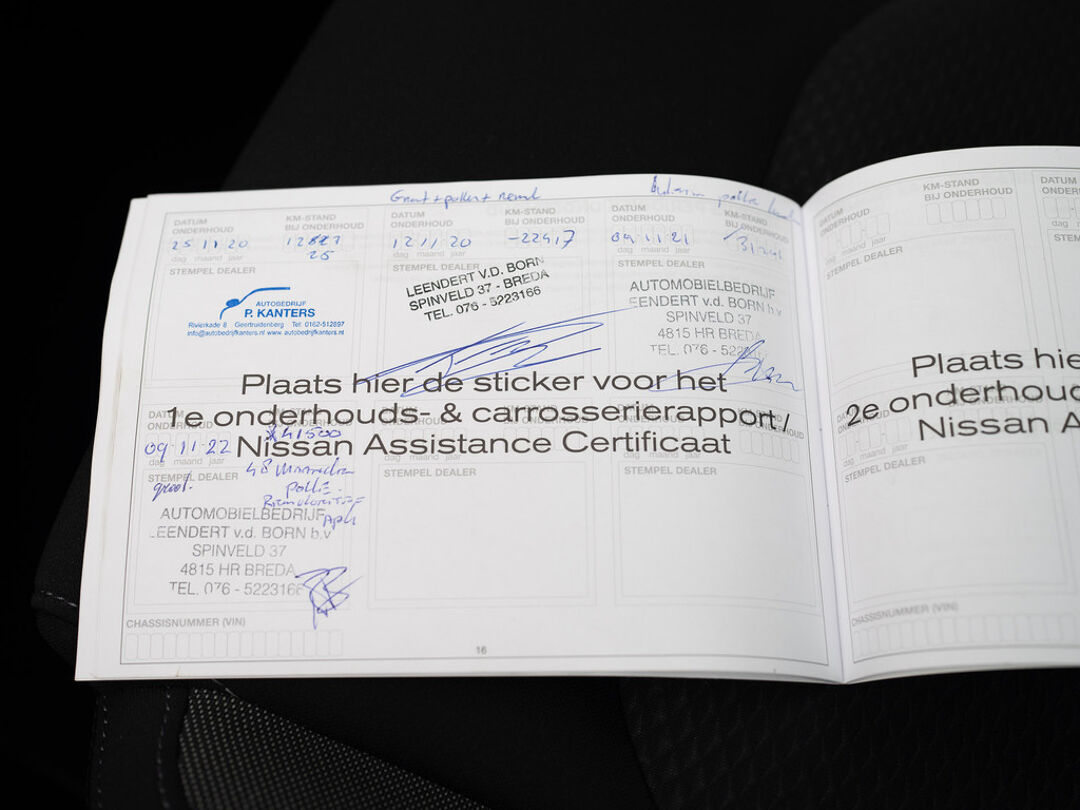 DATUM ONDERHOUD
KM-STAND BIJ ONDERHOUD
25 11 20
dag maand jaar
25
STEMPEL DEALER
AUTOBEDRIJF
P. KANTERS
Rivierkade 8 Geertruidenberg Tel: 0162-512897
info@autobedrijfkanters.nl www.autobedrijfkanters.nl
DATUM ONDERHOUD
KM-STAND BIJ ONDERHOUD
12 11 20
-22417
dag maand jaar
STEMPEL DEALER
LEENDERT V.D. BORN
SPINVELD 37 - BREDA
TEL. 076 - 5223166
DATUM ONDERHOUD
KM-STAND BIJ ONDERHOUD
09 11 21
dag maand jaar
STEMPEL DEALER
AUTOMOBIELBEDRIJF
LEENDERT v.d. BORN b.v
SPINVELD 37
4815 HR BREDA
TEL. 076 - 522
Plaats hier de sticker voor het
1e onderhouds- & carrosserierapport /
Nissan Assistance Certificaat
DATUM ONDERHOUD
09 11 22
41500
dag maand jaar
48 Maanden
STEMPEL DEALER
groot.
Pollen
APK
AUTOMOBIELBEDRIJF
LEENDERT v.d. BORN b.v
SPINVELD 37
4815 HR BREDA
TEL. 076 - 5223166
dag maand jaar
STEMPEL DEALER
dag maand jaar
STEMPEL DEALER
CHASSISNUMMER (VIN)
16
DATUM ONDERHOUD
KM-STAND BIJ ONDERHOUD
dag maand jaar
STEMPEL DEALER
DATUM
ONDER
STEM
Plaats hie
2e onderhoud
Nissan A
dag maand jaar
STEMPEL DEALER
STEM
CHASSISNUMMER (VIN)